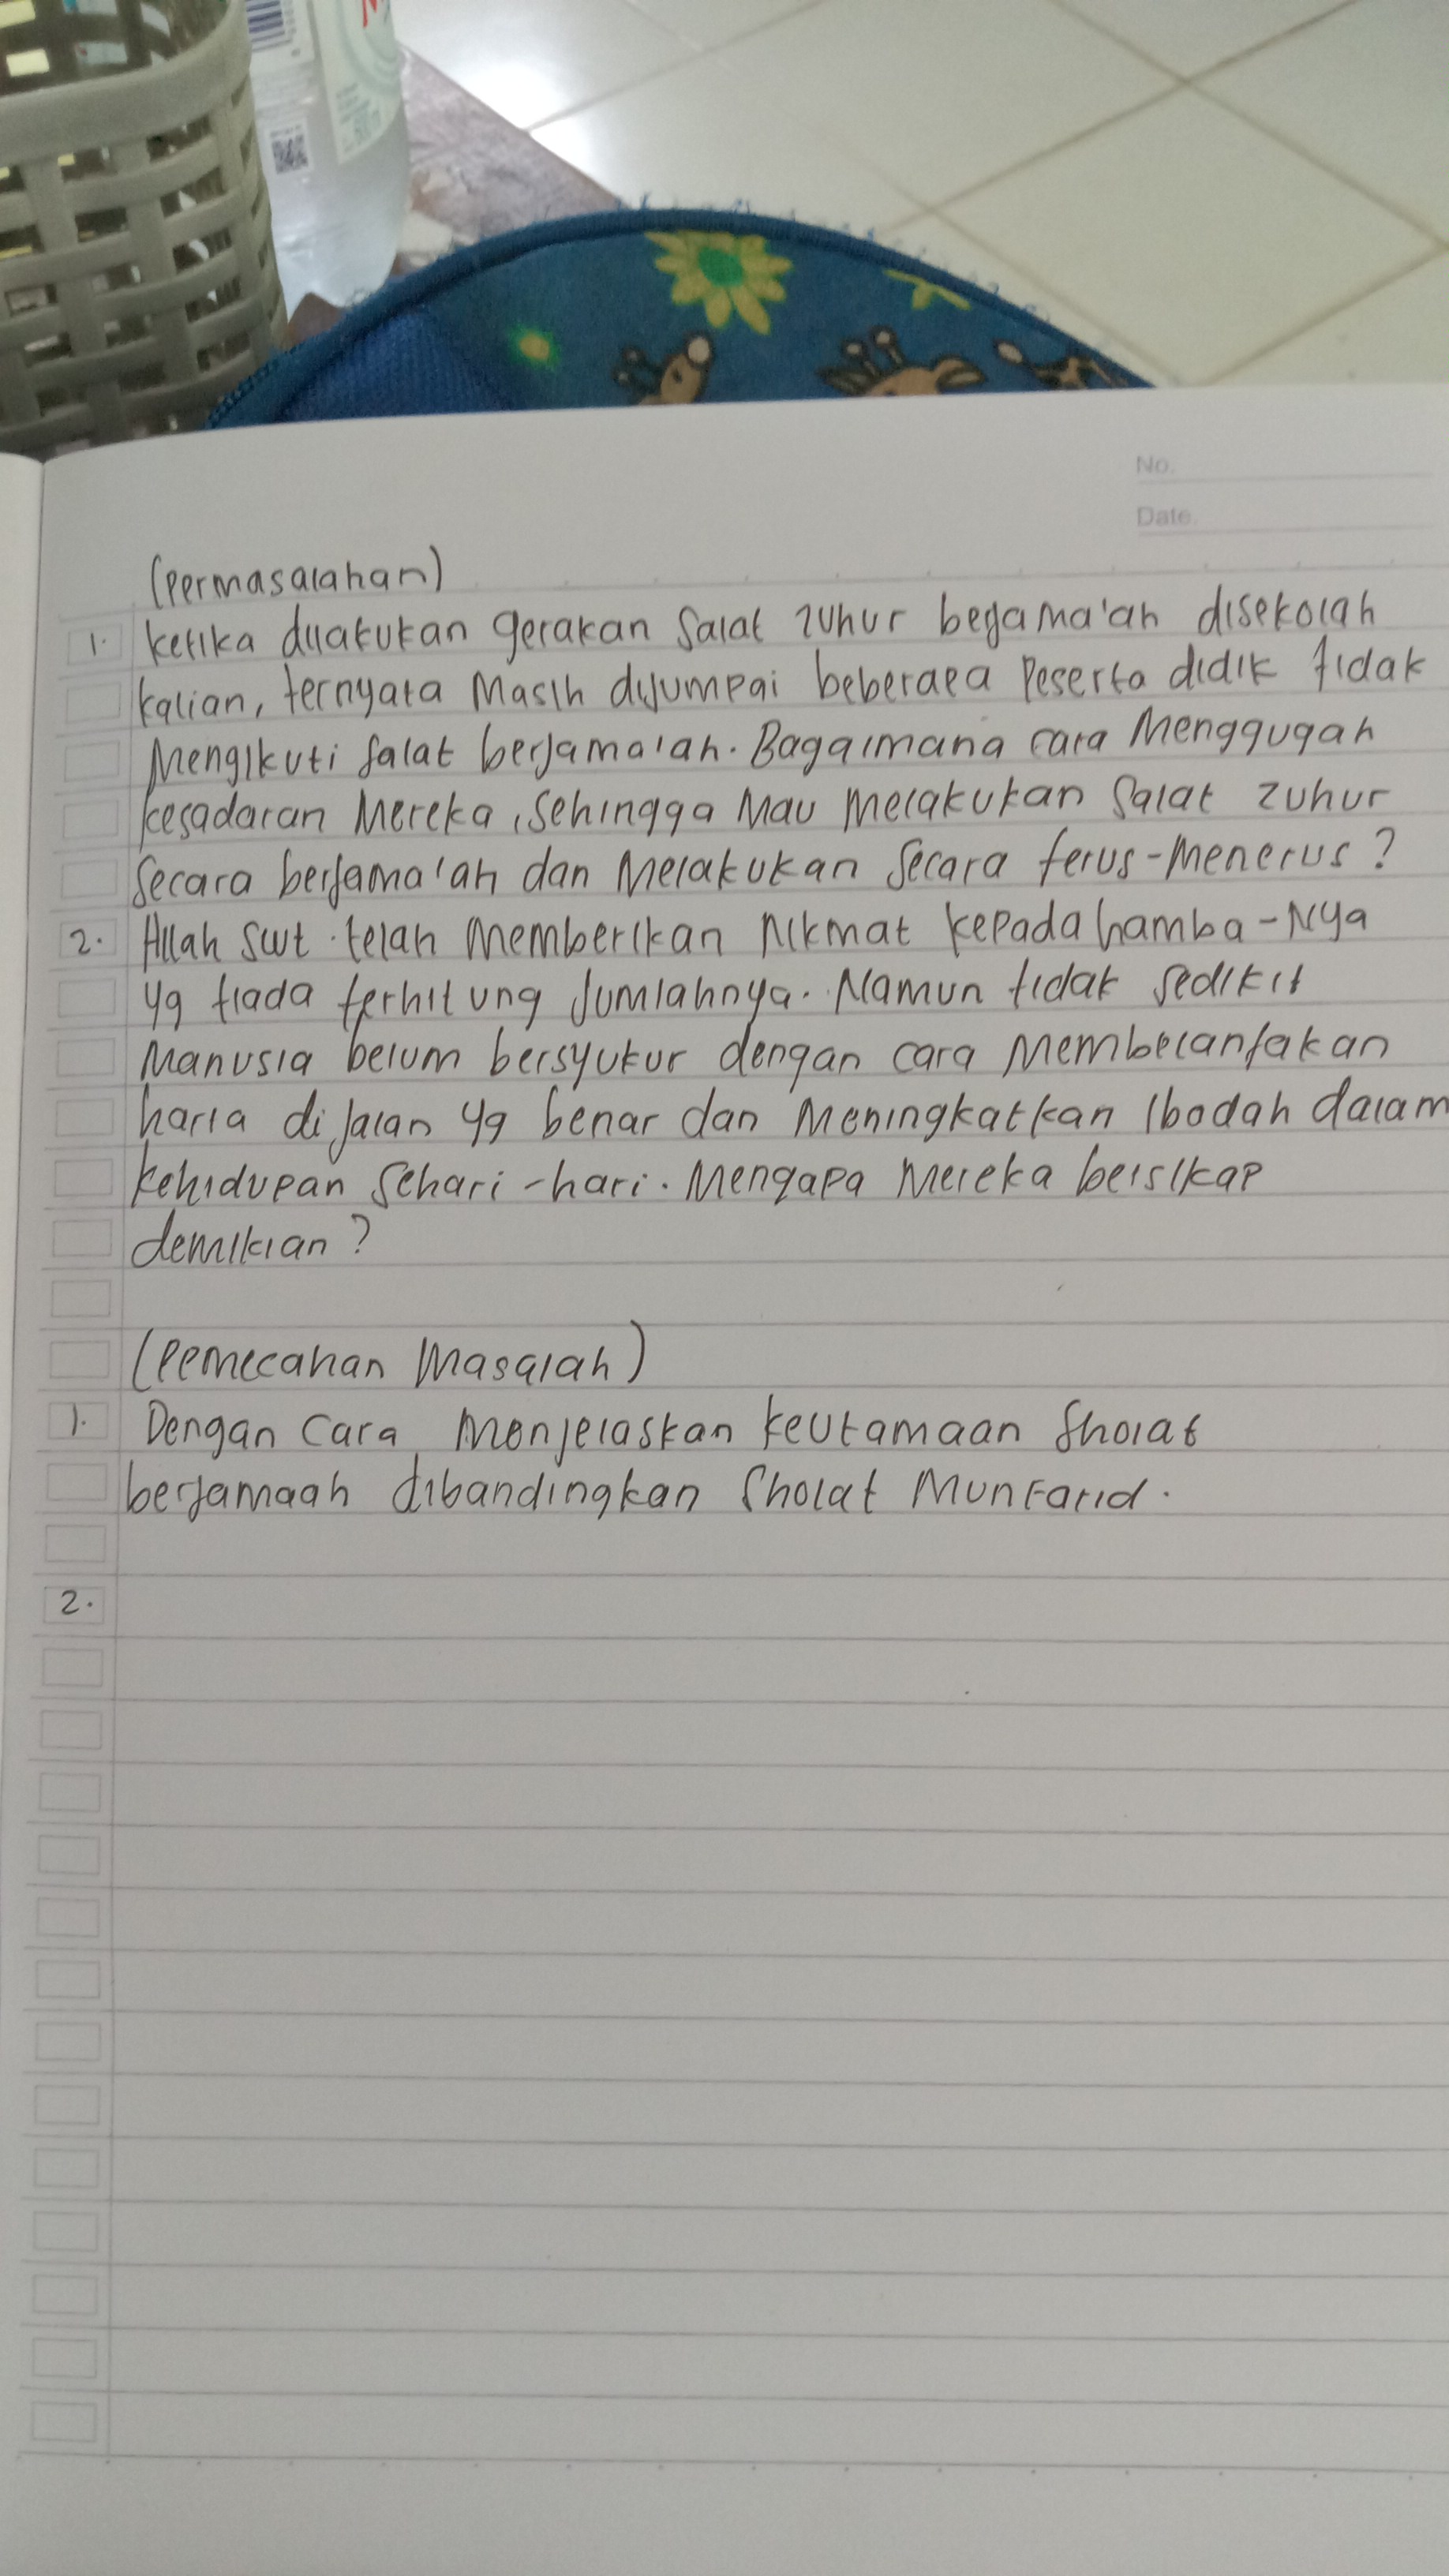 No.
Date.
(Permasalahan)
1. Ketika dilakukan gerakan Salat zuhur berjama'ah disekolah
kalian, ternyata Masih dijumpai beberapa Peserta didik tidak
Mengikuti Salat berjama'ah. Bagaimana cara Menggugah
kesadaran Mereka, Sehingga Mau Melakukan Salat zuhur
Secara berjama'ah dan Melakukan Secara terus-Menerus?
2. Allah swt. telah Memberikan Nikmat kepada hamba-Nya
yg tiada terhitung Jumlahnya. Namun tidak sedikit
Manusia belum bersyukur dengan cara Membelanjakan
harta di Jalan yg benar dan Meningkatkan Ibadah dalam
kehidupan Sehari-hari. Mengapa Mereka bersikap
demikian?
(Pemecahan Masalah)
1. Dengan Cara Menjelaskan keutamaan Sholat
berjamaah dibandingkan Sholat MunFarid.
2.